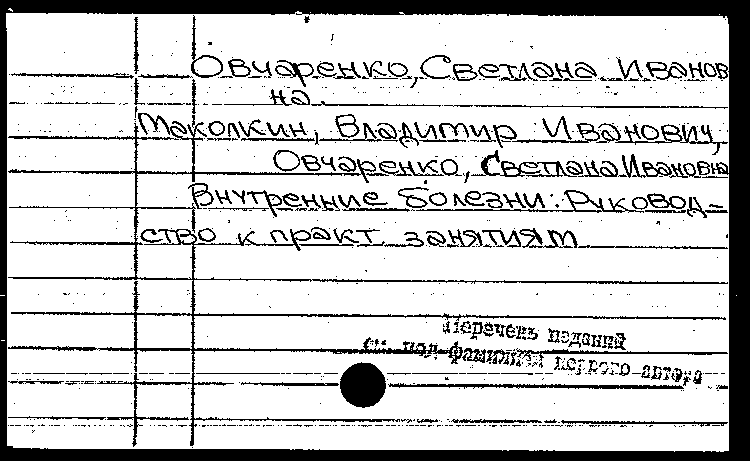 Овчаренко, Светлана Иванов
на.
Маколкин, Владимир Иванович,
Овчаренко, Светлана Ивановна
Внутренние болезни: Руковод-
ство к практ. занятиям
Перечень изданий
см. под фамилией первого автора